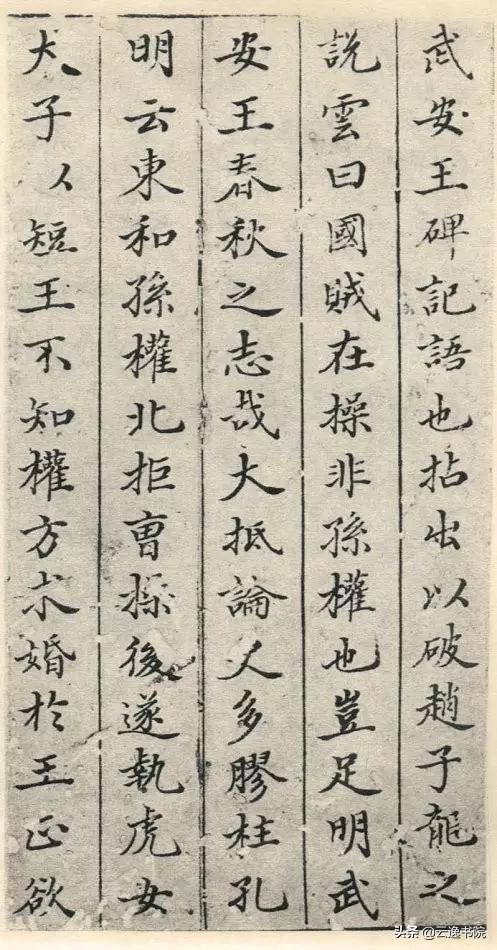 武安王碑記語也拈出以破趙子龍之
說雲曰國賊在操非孫權也豈足明武
安王春秋之志哉大抵論人多膠柱孔
明云東和孫權北拒曹操後遂執虎女
犬子以短王不知權方求婚於王正欲
头条 @云逸书院